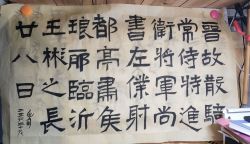 晉故散騎
常侍特進
衛將軍尚
書左僕射
都亭肅侯
琅邪臨沂
王彬之長
廿八日